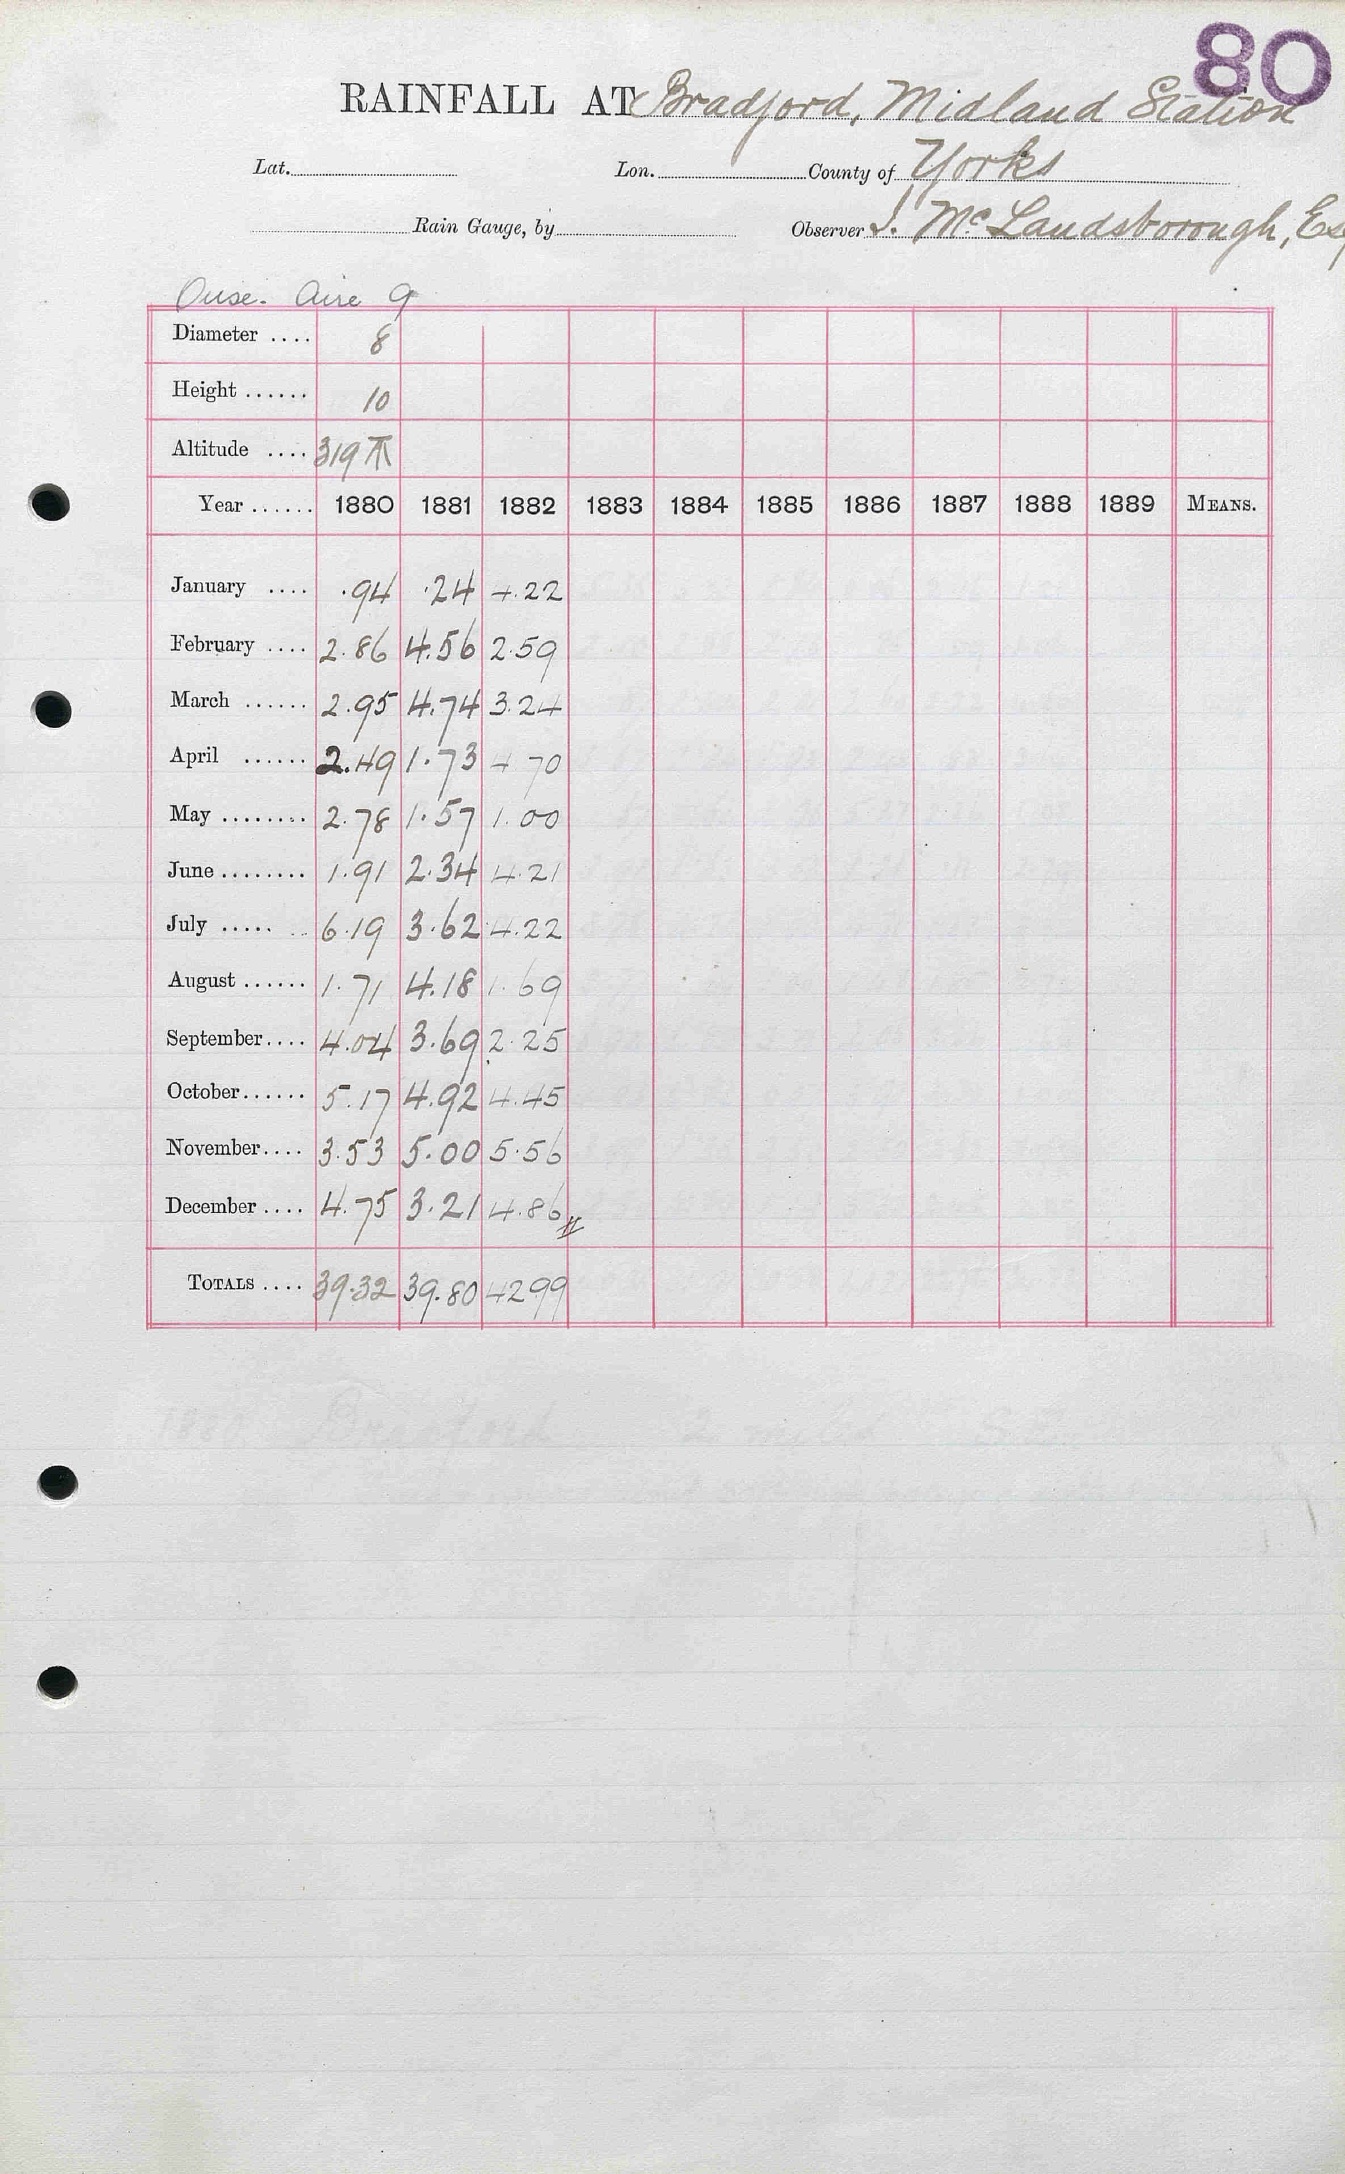 80
RAINFALL AT Bradford, Midland Station
Lat. Lon. County of Yorks
Rain Gauge, by Observer J. McLandsborough, Esq
Ouse. Aire 9
Diameter .... 8
Height ...... 10
Altitude .... 319 T
Year ...... 1880 1881 1882 1883 1884 1885 1886 1887 1888 1889 MEANS.
January .... .94 .24 4.22
February .... 2.86 4.56 2.59
March ...... 2.95 4.74 3.24
April ...... 2.49 1.73 4 70
May ........ 2.78 1.57 1.00
June ........ 1.91 2.34 4.21
July ..... .. 6.19 3.62 4.22
August ...... 1.71 4.18 1.69
September.... 4.04 3.69 2.25
October...... 5.17 4.92 4.45
November.... 3.53 5.00 5.56
December .... 4.75 3.21 4.86
TOTALS .... 39.32 39.80 42.99